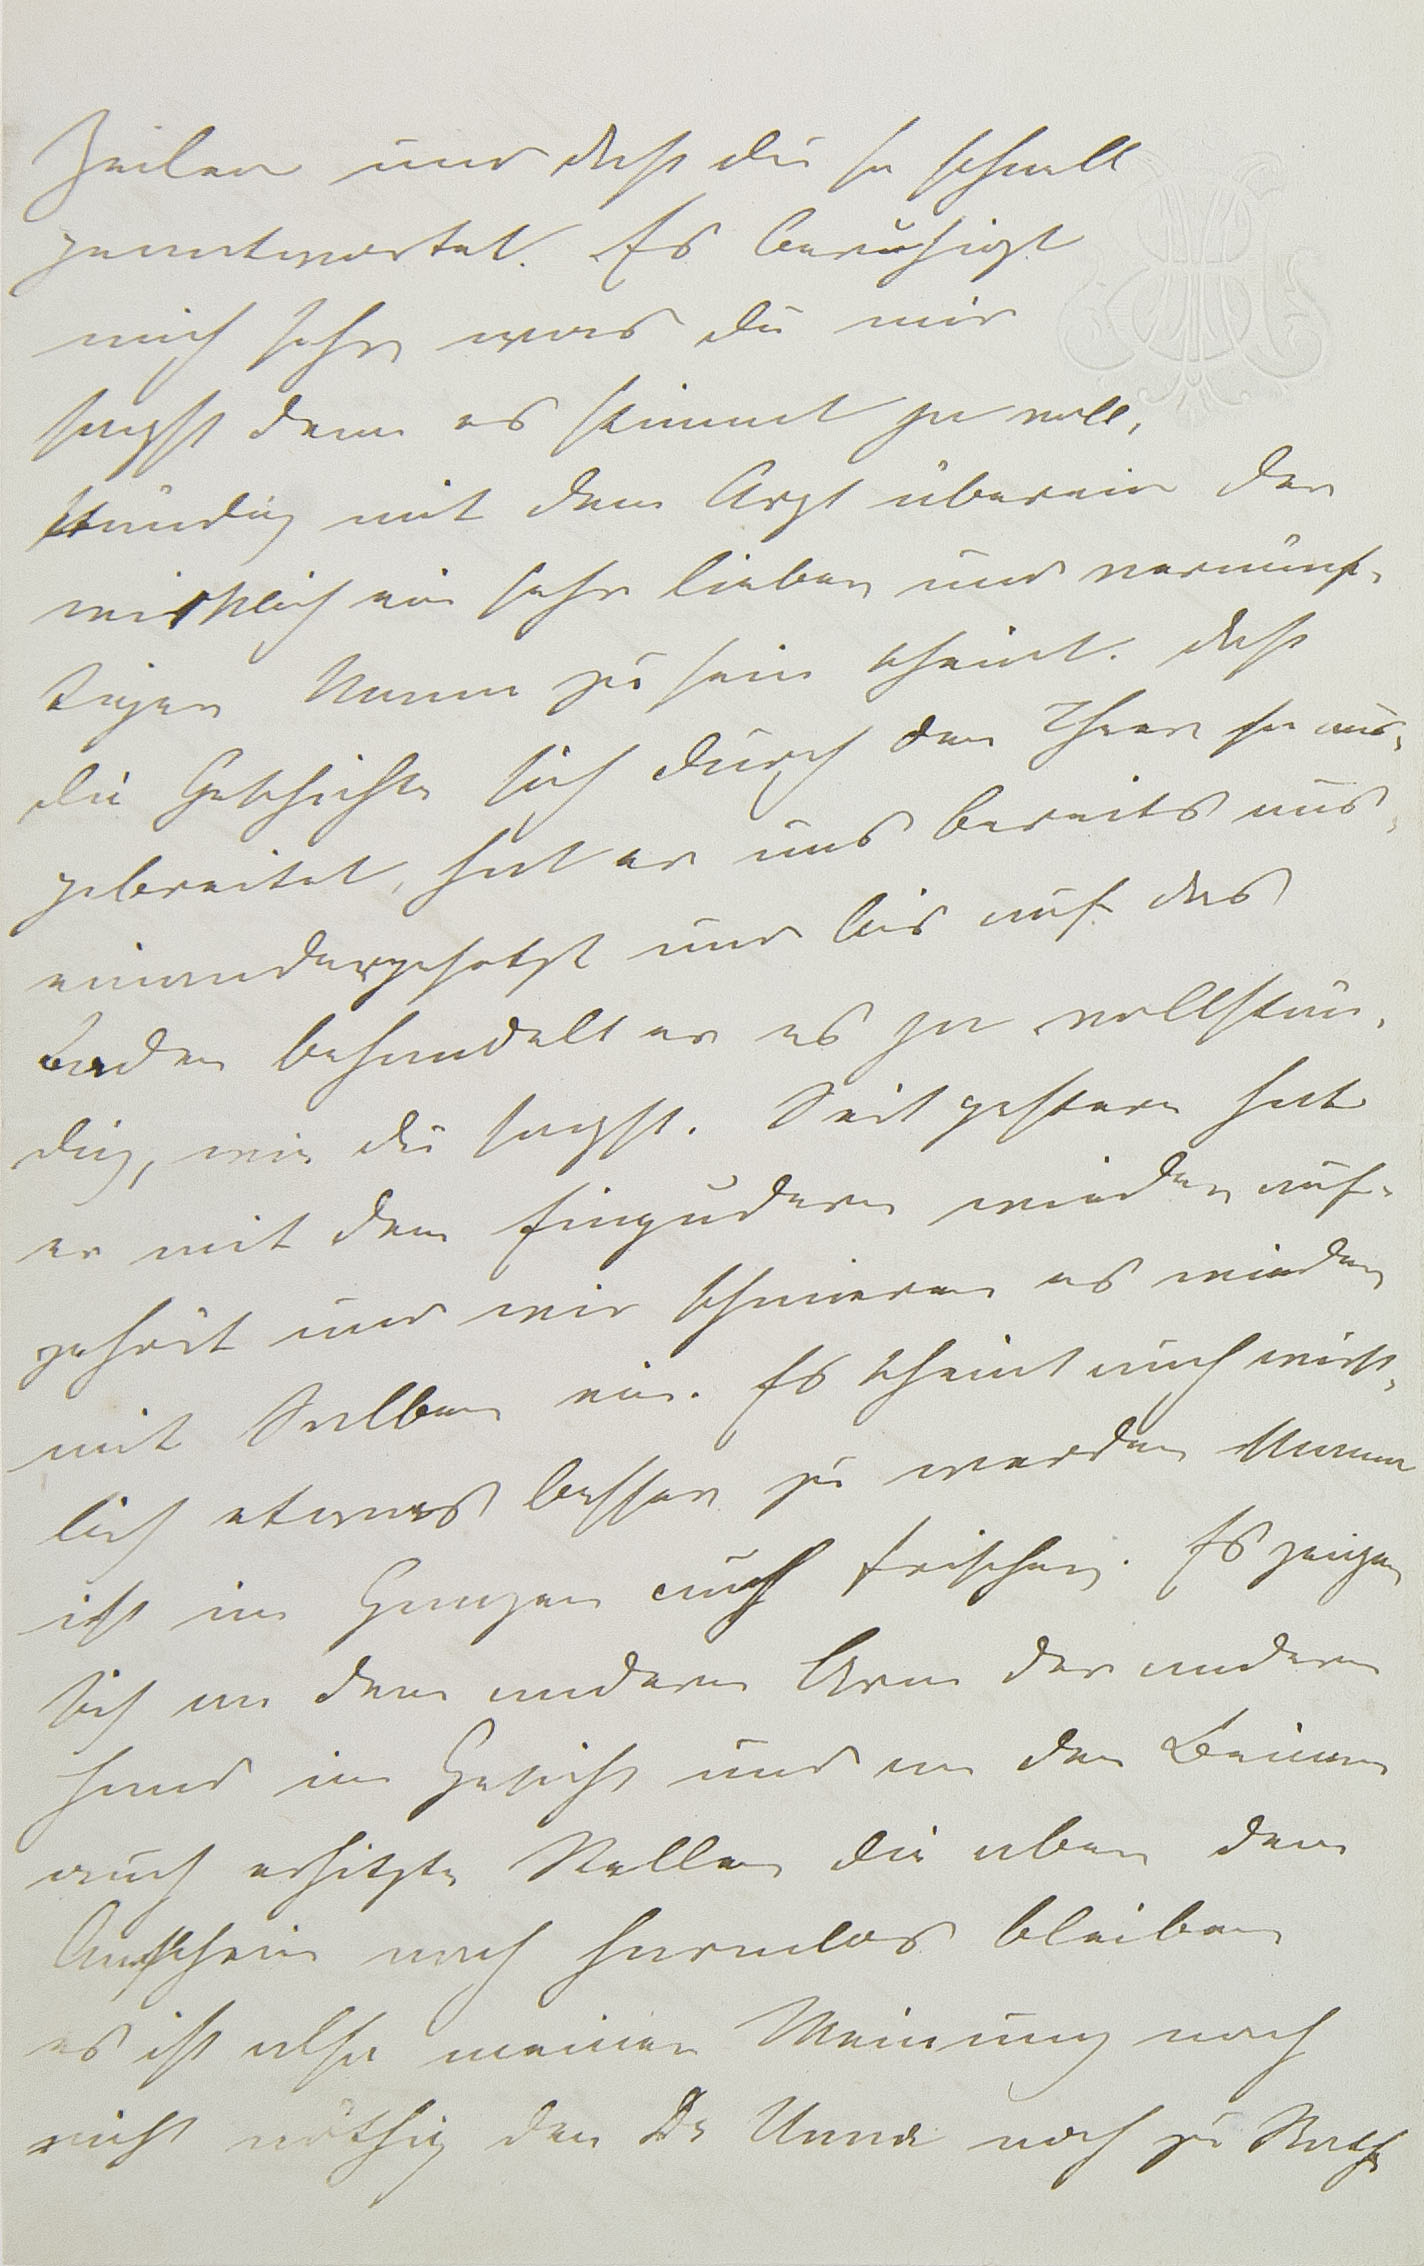 Zeilen und daß du so schnell
geantwortet. Es beruhigt
mich sehr was du mir
sagst denn es stimmt ja voll,
ständig mit dem Arzt überein der
wirklich ein sehr lieber und vernünf-
tiger Mann zu sein scheint. Daß
die Geschichte sich durch den Theer so aus-
gebreitet, hat er uns bereits aus-
einandergesetzt und bis auf das
Baden behandelt er es ja vollstän-
dig, wie du sagst. Seit gestern hat
er mit dem Einpudern wieder auf-
gehört und wir schmieren es wieder
mit Salben ein. Es scheint auch wirk-
lich etwas besser zu werden Mama
ist im Ganzen auch frischer. Es zeigen
sich an dem andern Arm der andern
Hand im Gesicht und an den Beinen
auch erhitzte Stellen die aber dem
Anschein nach harmlos bleiben
es ist also meiner Meinung nach
nicht nöthig den Dr Unna noch zu Rathe